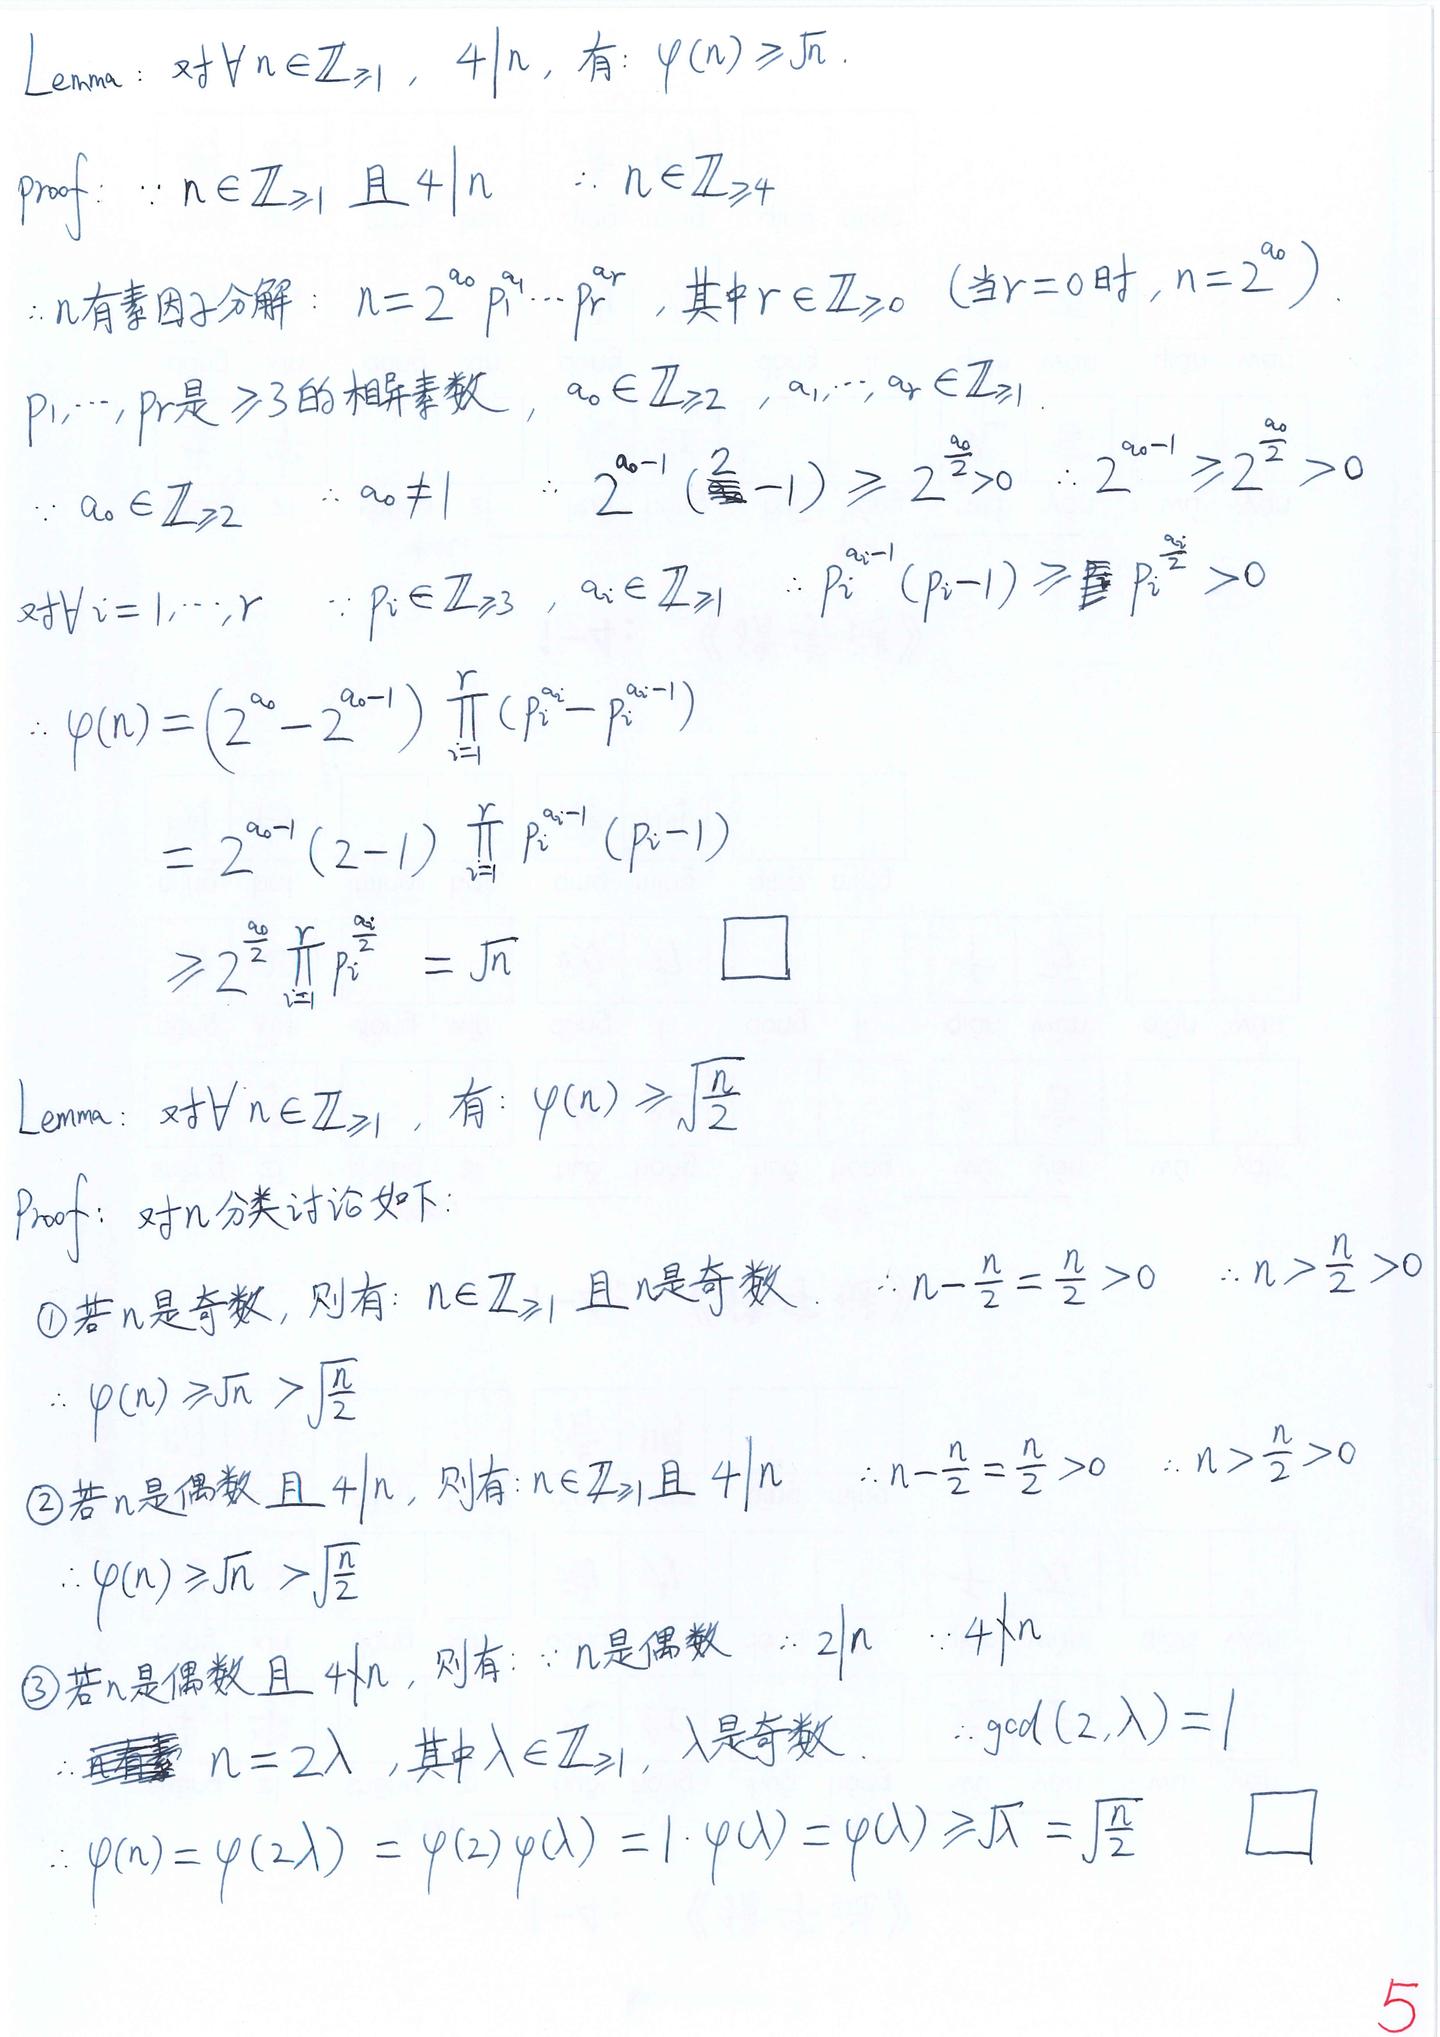 Lemma: 对∀n∈ℤ≥1, 4|n, 有: φ(n)≥√n.
proof: ∵ n∈ℤ≥1 且 4|n ∴ n∈ℤ≥4
∴ n有素因子分解: n=2^{a₀} p₁^{a₁}⋯pᵣ^{aᵣ}, 其中r∈ℤ≥0 (当r=0时, n=2^{a₀}).
p₁,⋯,pᵣ是≥3的相异素数, a₀∈ℤ≥2, a₁,⋯,aᵣ∈ℤ≥1.
∵ a₀∈ℤ≥2 ∴ a₀≠1 ∴ 2^{a₀-1}(2-1)≥2^{a₀/2}>0 ∴ 2^{a₀-1}≥2^{a₀/2}>0
对∀i=1,⋯,r ∵ pᵢ∈ℤ≥3, aᵢ∈ℤ≥1 ∴ pᵢ^{aᵢ-1}(pᵢ-1)≥pᵢ^{aᵢ/2}>0
∴ φ(n)=(2^{a₀}-2^{a₀-1})∏_{i=1}^{r}(pᵢ^{aᵢ}-pᵢ^{aᵢ-1})
=2^{a₀-1}(2-1)∏_{i=1}^{r}pᵢ^{aᵢ-1}(pᵢ-1)
≥2^{a₀/2}∏_{i=1}^{r}pᵢ^{aᵢ/2} =√n □
Lemma: 对∀n∈ℤ≥1, 有: φ(n)≥√(n/2)
Proof: 对n分类讨论如下:
①若n是奇数, 则有: n∈ℤ≥1 且n是奇数. ∴ n-n/2=n/2>0 ∴ n>n/2>0
∴ φ(n)≥√n>√(n/2)
②若n是偶数且4|n, 则有: n∈ℤ≥1且4|n ∴ n-n/2=n/2>0 ∴ n>n/2>0
∴ φ(n)≥√n>√(n/2)
③若n是偶数且4∤n, 则有: ∵ n是偶数 ∴ 2|n ∵ 4∤n
∴ n=2λ, 其中λ∈ℤ≥1, λ是奇数. ∴ gcd(2,λ)=1
∴ φ(n)=φ(2λ)=φ(2)φ(λ)=1·φ(λ)=φ(λ)≥√λ=√(n/2) □
5